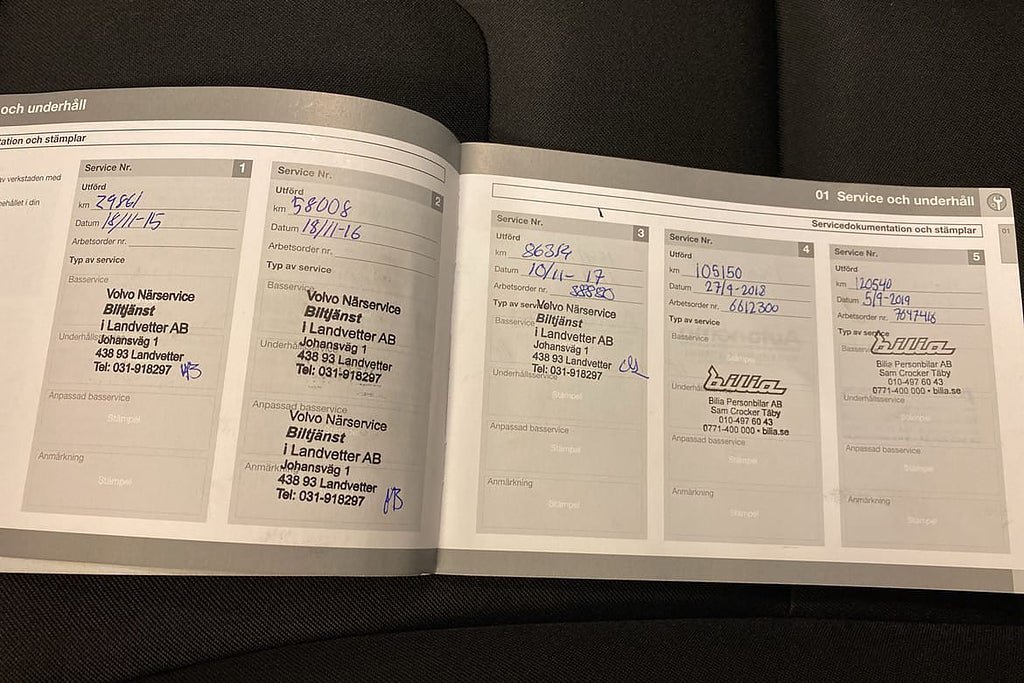 och underhåll
tation och stämplar
av verkstaden med
nehållet i din
Service Nr. 1
Utförd
km 29861
Datum 18/11-15
Arbetsorder nr.
Typ av service
Basservice
Volvo Närservice
Biltjänst
i Landvetter AB
Johansväg 1
438 93 Landvetter
Tel: 031-918297
Underhålls
Anpassad basservice
Stämpel
Anmärkning
Stämpel
Service Nr. 2
Utförd
km 58008
Datum 18/11-16
Arbetsorder nr.
Typ av service
Basservice
Volvo Närservice
Biltjänst
i Landvetter AB
Johansväg 1
438 93 Landvetter
Tel: 031-918297
Underhålls
Anpassad basservice
Volvo Närservice
Biltjänst
i Landvetter AB
Johansväg 1
438 93 Landvetter
Tel: 031-918297
Anmärkning
01 Service och underhåll
Servicedokumentation och stämplar
01
Service Nr. 3
Utförd
km 86314
Datum 10/11-17
Arbetsorder nr. 38880
Typ av service
Volvo Närservice
Basservice
Biltjänst
i Landvetter AB
Johansväg 1
438 93 Landvetter
Tel: 031-918297
Underhållsservice
Stämpel
Anpassad basservice
Stämpel
Anmärkning
Stämpel
Service Nr. 4
Utförd
km 105150
Datum 27/9-2018
Arbetsorder nr. 6612300
Typ av service
Basservice
Stämpel
Underh
bilia
Bilia Personbilar AB
Sam Crocker Täby
010-497 60 43
0771-400 000 • bilia.se
Anpassad basservice
Stämpel
Anmärkning
Stämpel
Service Nr. 5
Utförd
km 120540
Datum 5/9-2019
Arbetsorder nr. 7647416
Typ av service
Basserv
bilia
Bilia Personbilar AB
Sam Crocker Täby
010-497 60 43
0771-400 000 • bilia.se
Underhållsservice
Stämpel
Anpassad basservice
Stämpel
Anmärkning
Stämpel